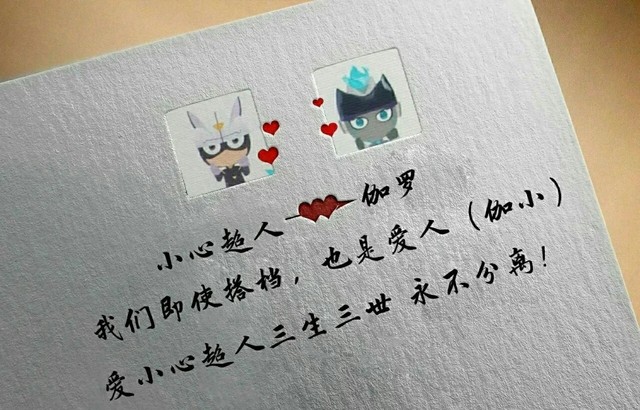 小心超人 伽罗
我们即使搭档，也是爱人（伽小）
爱小心超人三生三世 永不分离！